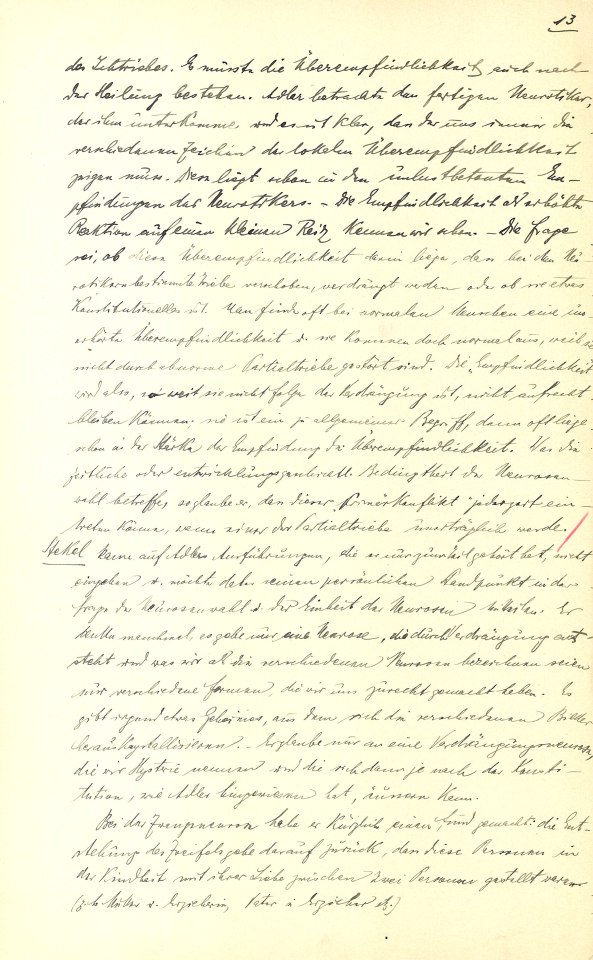 13
des Ichtriebes. Es müsste die Überempfindlichkeit auch nach
der Heilung bestehen. Adler betrachte den fertigen Neurotiker,
der ihm unterkomme, und es ist klar, dass der uns immer die
verschiedenen Zeichen der lokalen Überempfindlichkeit
zeigen muss. Diese liegt schon in den unlustbetonten Em-
pfindungen des Neurotikers. – Die Empfindlichkeit als erhöhte
Reaktion auf einen kleinen Reiz kennen wir schon. – Die Frage
sei, ob diese Überempfindlichkeit darin liege, dass bei den Neu-
rotikern bestimmte Triebe verschoben, verdrängt werden oder ob sie etwas
Konstitutionelles ist. Man finde oft bei normalen Menschen eine un-
erhörte Überempfindlichkeit u. sie kommen doch normal aus, weil sie
nicht durch abnorme Partialtriebe gestört sind. Die „Empfindlichkeit“
wird also, soweit sie nicht Folge der Verdrängung ist, nicht aufrecht
bleiben können; sie ist ein zu allgemeiner Begriff, denn oft liege
schon in der Stärke der Empfindung die Überempfindlichkeit. Was die
zeitliche oder entwicklungsgeschichtl. Bedingtheit der Neurosen-
wahl betreffe, so glaube er, dass dieser „Primärkonflikt“ jederzeit ein-
treten könne, wenn einer der Partialtriebe unerträglich werde.
Stekel kann auf Adlers Ausführungen, die er nur zum Teil gehört hat, nicht
eingehen u. möchte daher seinen persönlichen Standpunkt in der
Frage der Neurosenwahl u. der Einheit der Neurosen mitteilen. Er
denke manchmal, es gebe nur eine Neurose, die durch Verdrängung ent-
steht und was wir als die verschiedenen Neurosen bezeichnen seien
nur verschiedene Formen, die wir uns zurecht gemacht haben. Es
gibt irgend etwas Geheimes, aus dem sich die verschiedenen Bilder
herauskrystallisieren. – Er glaube nur an eine Verdrängungsneurose,
die wir Hysterie nennen und die sich dann je nach der Konsti-
tution, wie Adler hingewiesen hat, äussern kann.
Bei der Zwangsneurose habe er kürzlich einen Fund gemacht: die Ent-
stehung des Zweifels gehe darauf zurück, dass diese Personen in
der Kindheit mit ihrer Liebe zwischen zwei Personen gestellt waren
(z. b. Mutter u. Erzieherin, Vater u. Erzieher etc.)